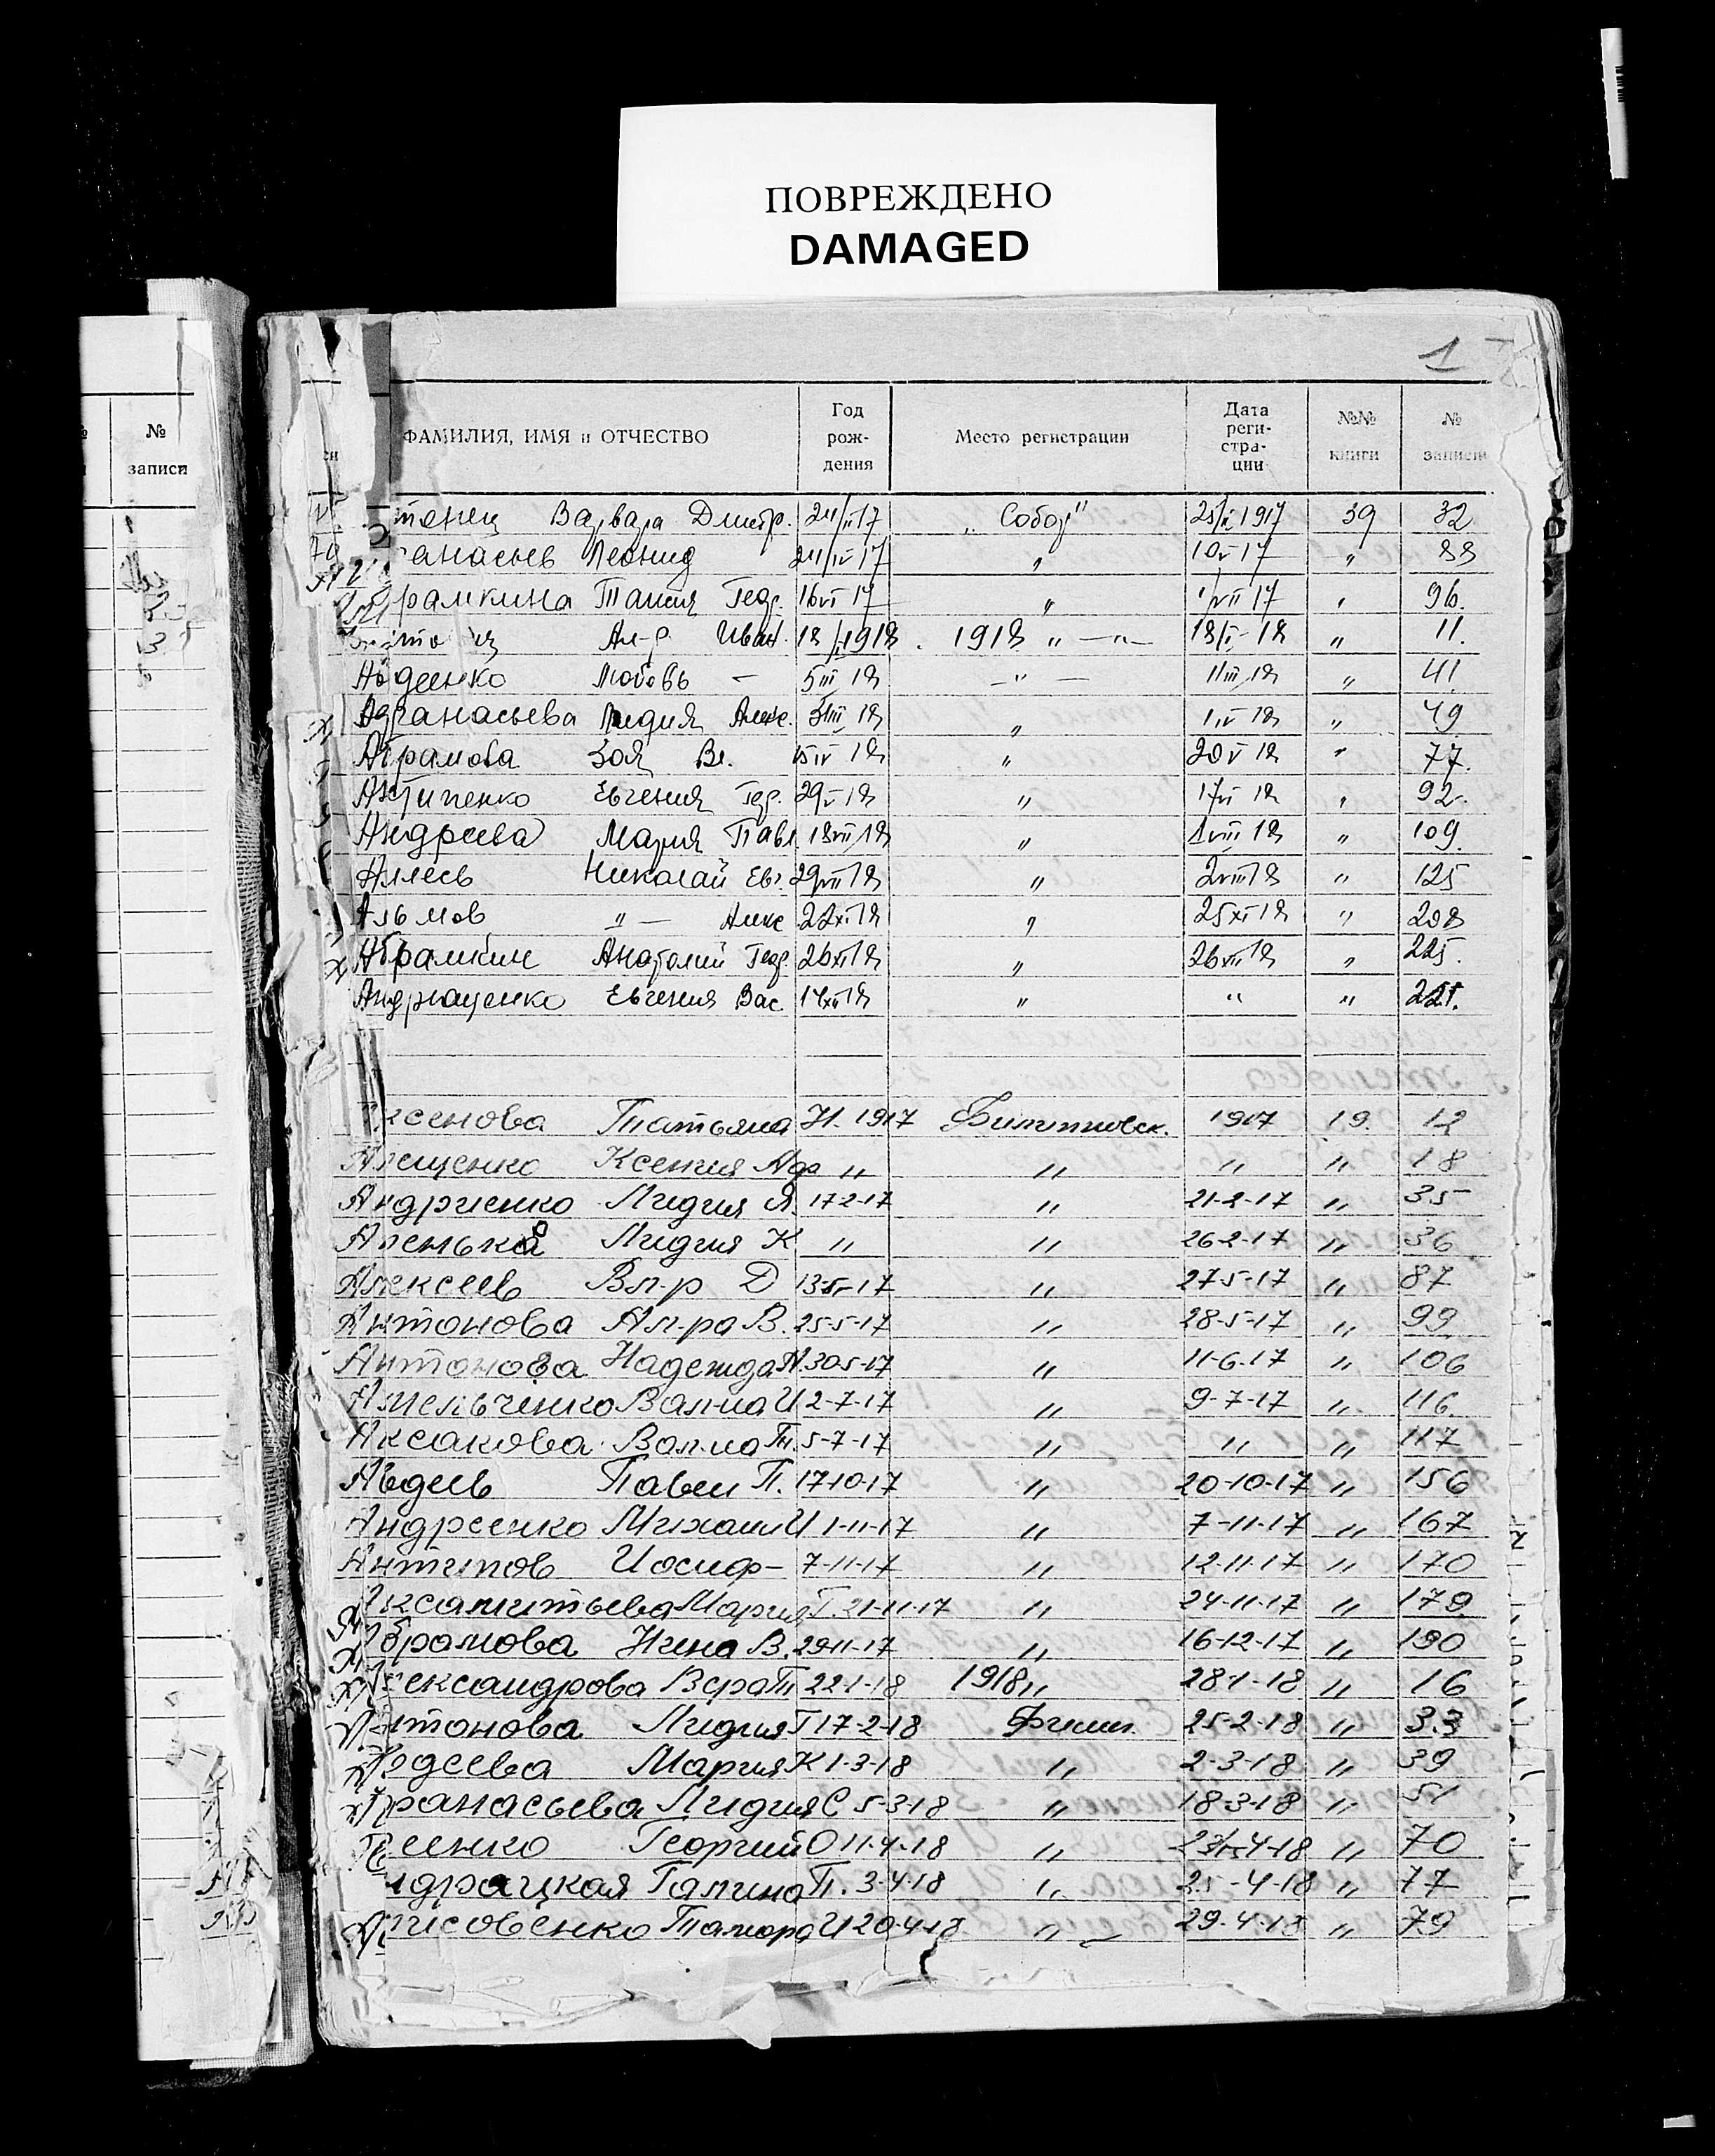 ПОВРЕЖДЕНО
DAMAGED
1
№ записи
ФАМИЛИЯ, ИМЯ и ОТЧЕСТВО Год рож-дения Место регистрации Дата реги-стра-ции №№ книги № записи
Варвара Дмитр. 24/II 17 „Собор" 25/II 1917 39 32
анасьев Леонид 24/IV 17 " 10 V 17 " 88
рамкина Таисия Геор. 16 VI 17 " 1/VII 17 " 96.
Ал-р Иван. 18/I 1918. 1918 " —"— 18/I-18 " 11.
Авдеенко Любовь — 5 III 18 —"— 11 III 18 " 41
Афанасьева Лидия Алекс. 31 III 18 " 1 IV 18 " 49
Абрамова Зоя Вл. 15 IV 18 " 20 V 18 " 77.
Антипенко Евгения Геор. 29 V 18 " 17 VI 18 " 92.
Андреева Мария Павл. 18 VII 18 " 1 VIII 18 " 109.
Николай Евг. 29 VII 18 " 2 VIII 18 " 125
"— Алекс 22 XI 18 " 25 XI 18 " 208
Абрамкин Анатолий Геор. 26 XII 18 " 26 XII 18 " 225.
Андрющенко Евгения Вас. 14 XII 18 " " " 221.
ксенова Татьяна Н. 1917 Филипповск. 1917 19 12
Алещенко Ксения Аф " " " " 18
Андриенко Лидия Я. 17-2-17 " 21-2-17 " 35
Лидия К " " 26-2-17 " 36
Алексеев Вл-р Д 13-5-17 " 27-5-17 " 87
Антонова Ал-ра В. 25-5-17 " 28-5-17 " 99
Антонова Надежда 30-5-17 " 11-6-17 " 106
Амельченко Вал-на И 2-7-17 " 9-7-17 " 116
Аксакова Вал-на Т. 5-7-17 " " " 117
Авдеев Павел П. 17-10-17 " 20-10-17 " 156
Андреенко Михаил И 1-11-17 " 7-11-17 " 167
Антипов Иосиф — 7-11-17 " 12-11-17 " 170
Аксамитьева Мария Г. 21-11-17 " 24-11-17 " 179
Абрамова Нина В. 29-11-17 " 16-12-17 " 190
лександрова Вера Т 22-1-18 1918 " 28-1-18 " 16
нтонова Лидия Г 17-2-18 Филип. 25-2-18 " 33
Авдеева Мария К 1-3-18 " 2-3-18 " 39
Афанасьева Лидия С 5-3-18 " 18-3-18 " 51
еенко Георгий О 11-4-18 " 23-4-18 " 70
ндрацкая Галина П. 3-4-18 " 25-4-18 " 77
Тамара И 20-4-18 " 29-4-18 " 79